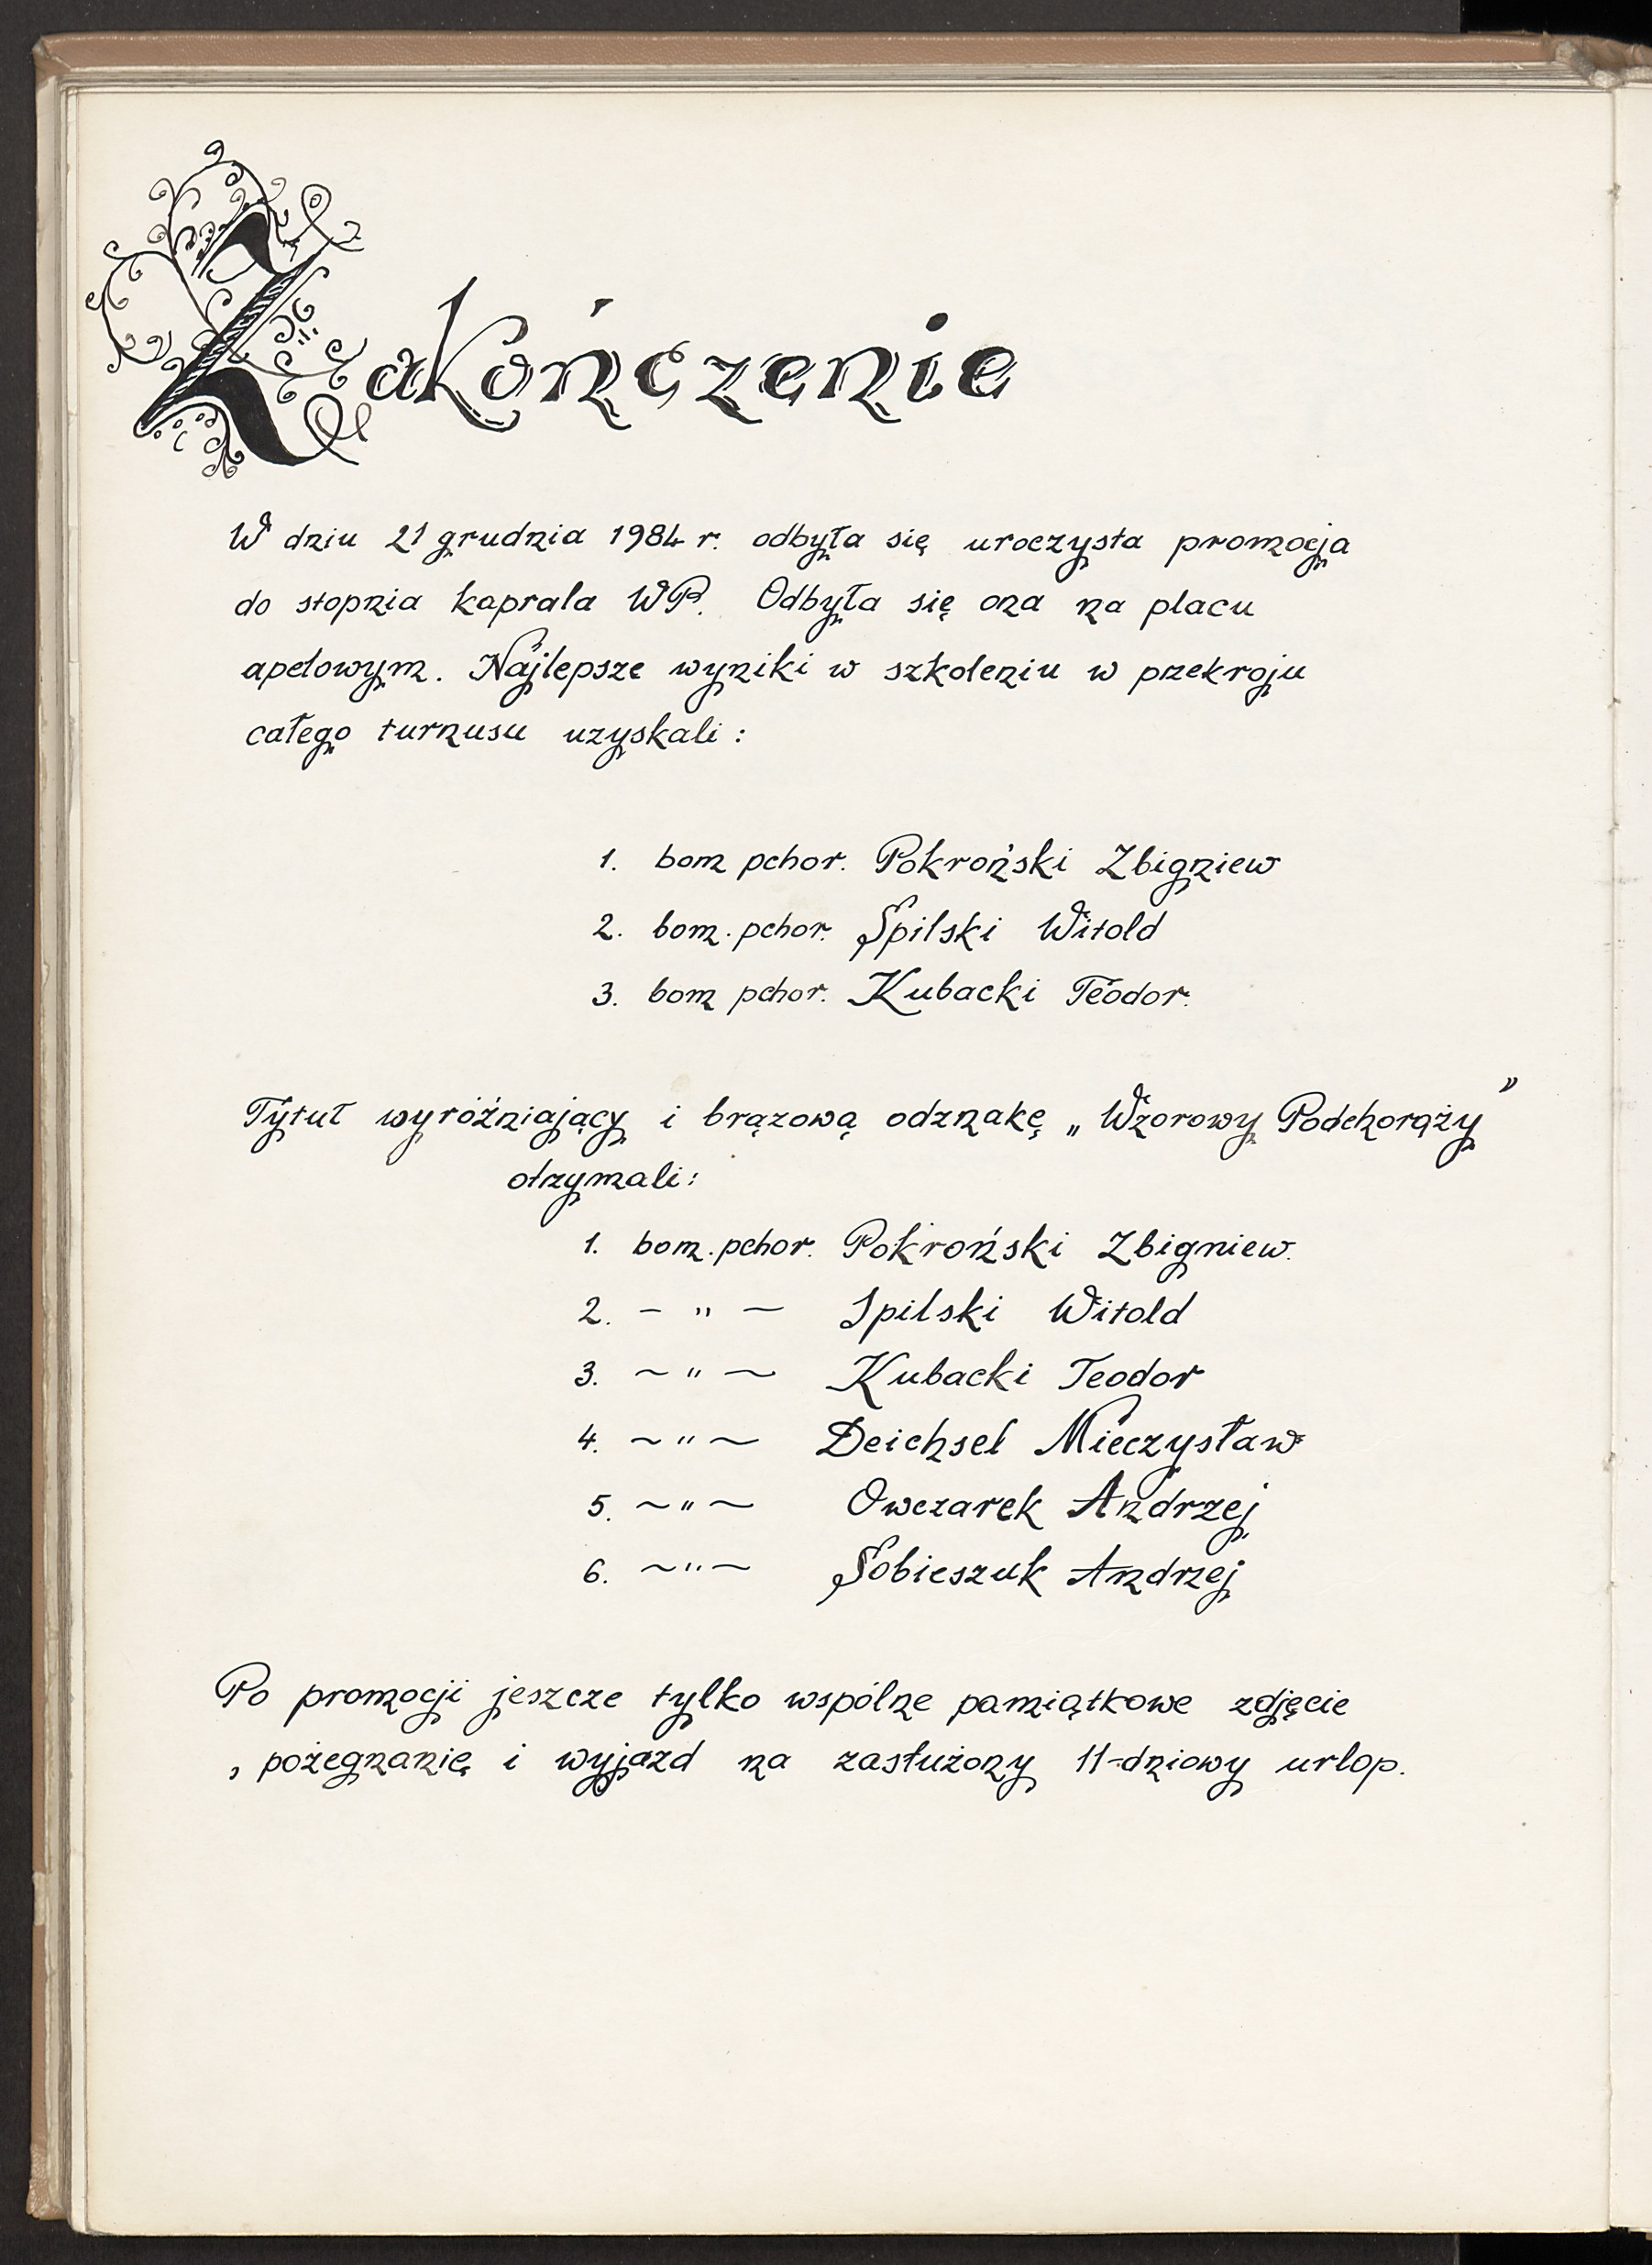 Zakończenie
W dniu 21 grudnia 1984 r. odbyła się uroczysta promocja
do stopnia kaprala WP. Odbyła się ona na placu
apelowym. Najlepsze wyniki w szkoleniu w przekroju
całego turnusu uzyskali:
1. bom pchor. Pokroński Zbigniew
2. bom. pchor. Spilski Witold
3. bom pchor. Kubacki Teodor.
Tytuł wyróżniający i brązową odznakę „Wzorowy Podchorąży”
otrzymali:
1. bom. pchor. Pokroński Zbigniew.
2. – " – Spilski Witold
3. ~ " ~ Kubacki Teodor
4. ~ " ~ Deichsel Mieczysław
5. ~ " ~ Owczarek Andrzej
6. ~ " ~ Sobieszuk Andrzej
Po promocji jeszcze tylko wspólne pamiątkowe zdjęcie
, pożegnanię i wyjazd na zasłużony 11-dniowy urlop.